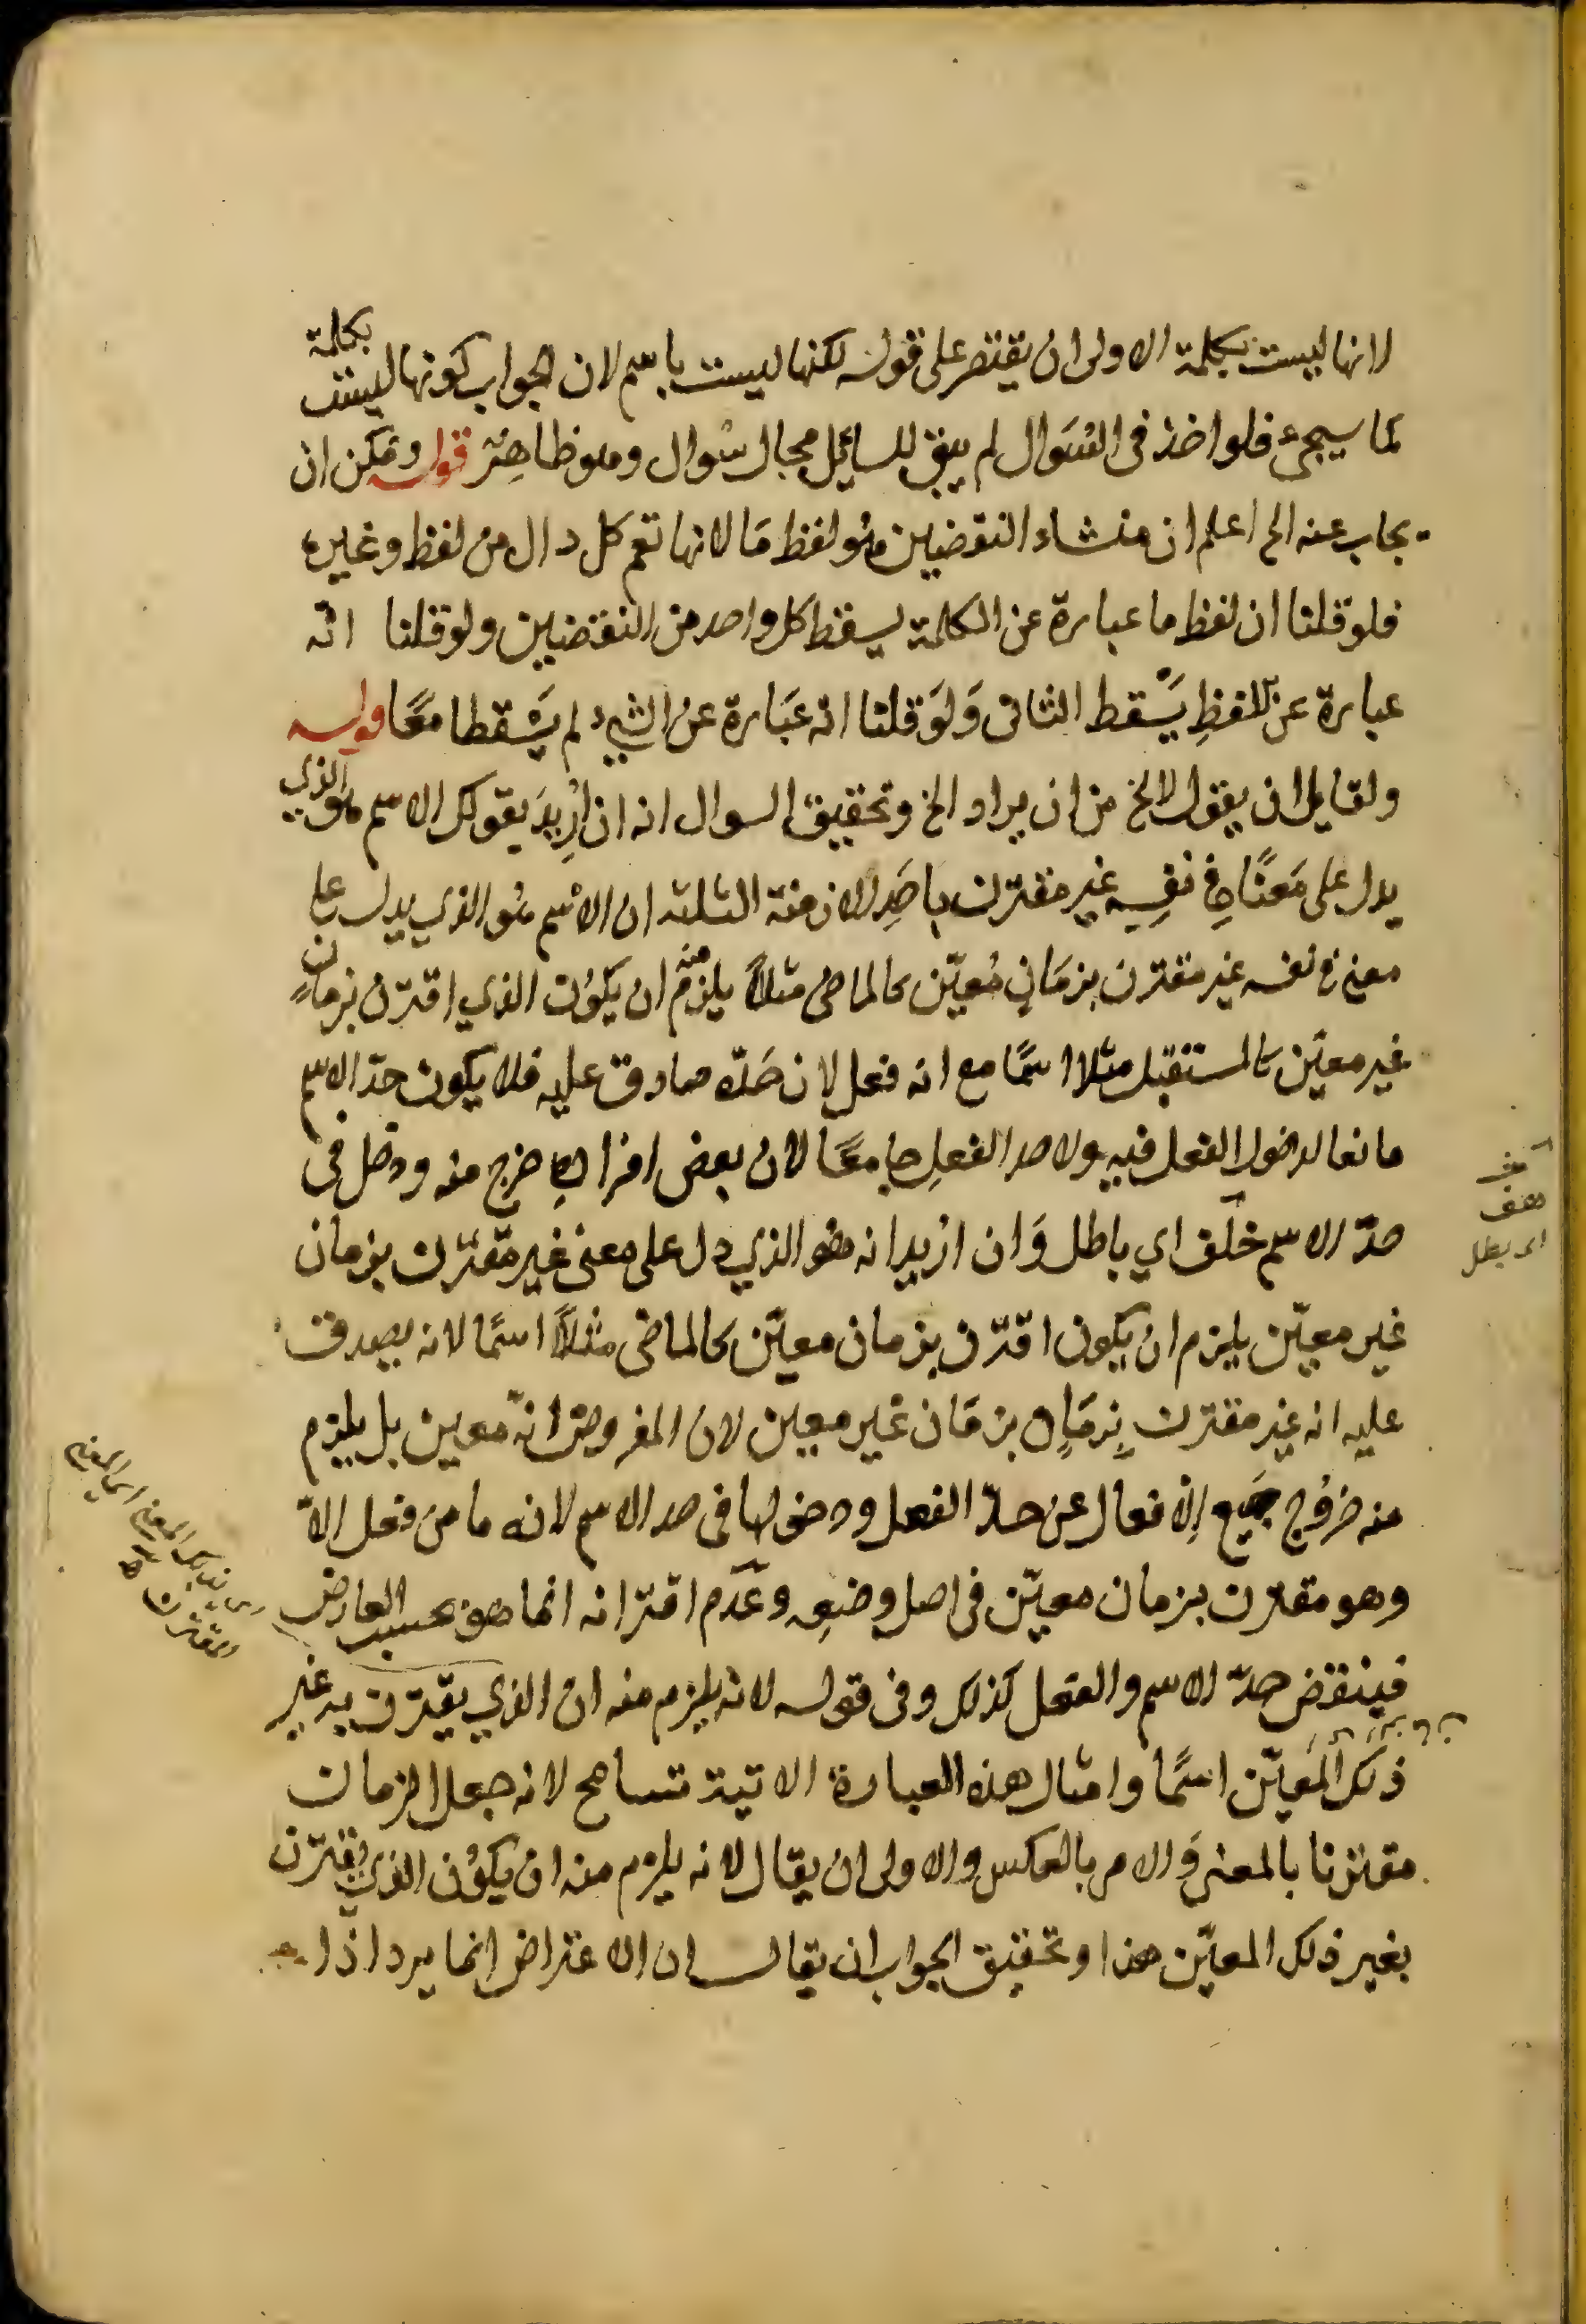 لانها ليست بكلمة الاولى ان يقتصر على قوله لكنها ليست باسم لان الجواب كونها ليست بكلمة
كما سيجىء فلو اخذ فى السؤال لم يبق للسائل مجال سؤال وهو ظاهر قوله ويمكن ان
يجاب عنه الخ اعلم ان منشاء النقضين هو لفظ ما لانها تعم كل دال من لفظ وغيره
فلو قلنا ان لفظ ما عبارة عن الكلمة يسقط كل واحد من النقضين ولو قلنا انه
عبارة عن اللفظ يسقط الثانى ولو قلنا انه عبارة عن الشىء لم يسقطا معا قوله
ولقايل ان يقول لا يخ من ان يراد الخ وتحقيق السوال انه ان اريد بقولك الاسم هو الذي
يدل على معنا في نفسه غير مقترن باحد الازمنة الثلثة ان الاسم هو الذي يدل على
معنى في نفسه غير مقترن بزمان معيّن كالماضى مثلاً يلزم منه ان يكون الذي اقترن بزمان
غير معيّن كالمستقبل مثلا اسمًا مع انه فعل لان حدّه صادق عليه فلا يكون حدّ الاسم
مانعا لدخول الفعل فيه ولا حد الفعل جامعًا لان بعض افراده خرج منه ودخل فى
حدّ الاسم خلف اي باطل وان اريد انه هو الذي دل على معنى غير مقترن بزمان
غير معيّن يلزم ان يكون اقترن بزمان معيّن كالماضى مثلاً اسمًا لانه يصدق
عليه انه غير مقترن بزمان بزمان غير معين لان المفروض انّه معين بل يلزم
منه خروج جميع الافعال عن حدّ الفعل ودخولها فى حد الاسم لانه ما من فعل الاّ
وهو مقترن بزمان معيّن فى اصل وضعه وعدم اقترانه انما هو بحسب العارض
فينقض حدّ الاسم والفعل كذلك وفى قوله لانه يلزم منه ان الذي يقترن به غير
ذلك المعيّن اسمًا وامثال هذه العبارة الاتية تسامح لانه جعل الزمان
مقترنا بالمعنى والامر بالعكس والاولى ان يقال لانه يلزم منه ان يكون الذي يقترن
بغير ذلك المعيّن هذا وتحقيق الجواب ان يقال ان الاعتراض انما يرد اذا